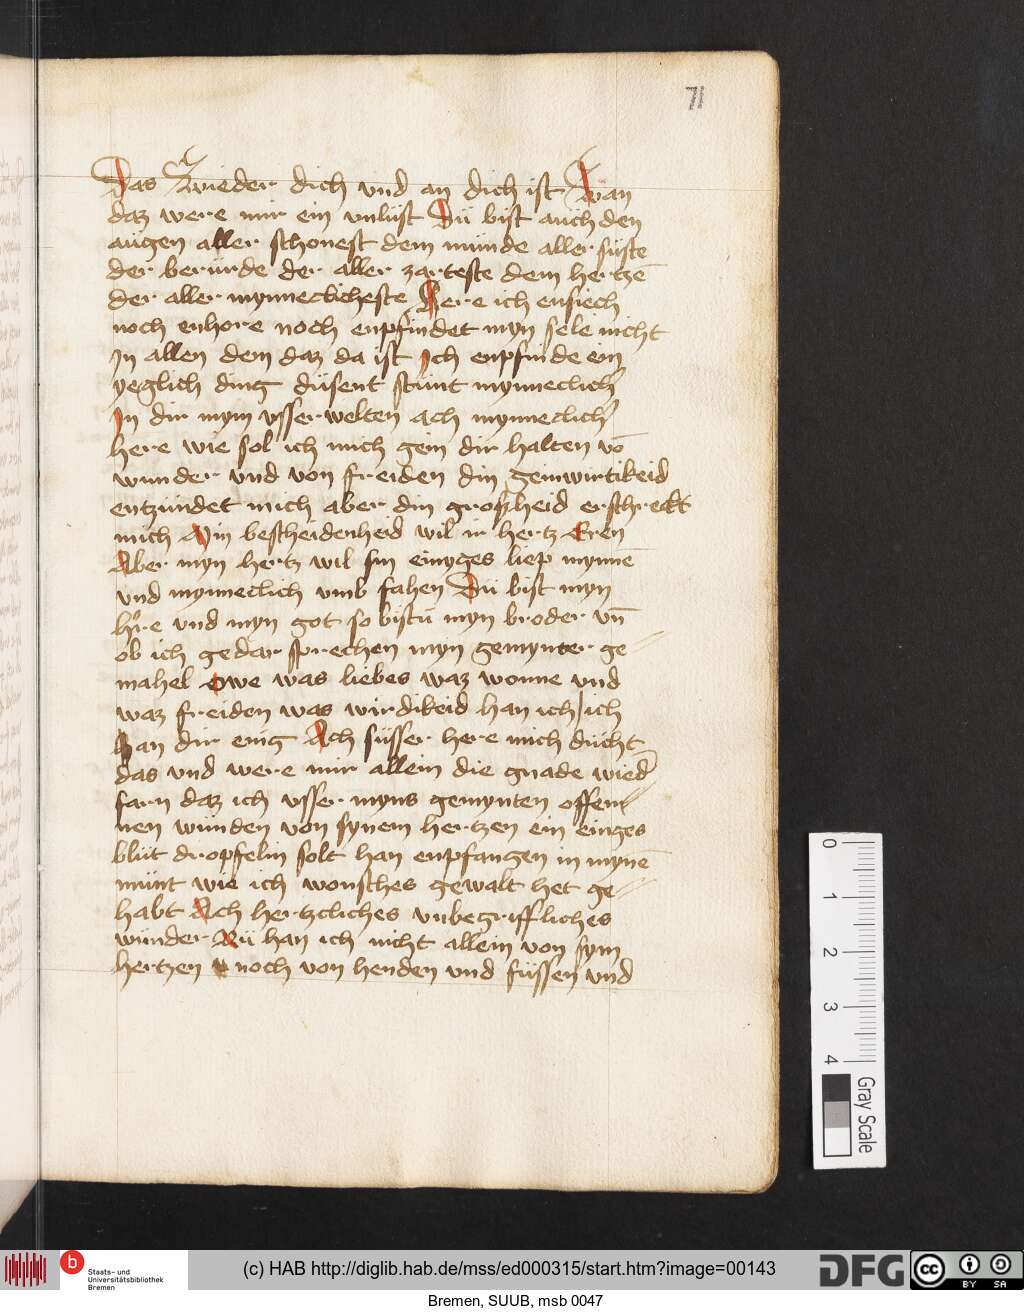 71
Das Wieder dich vnd an dich ist Wan
daz were mir ein vnlüst Dü bist auch den
augen aller schonest dem münde aller süste
der berürde der aller zarteste dem hertzē
der aller mynneclicheste Here ich ensiech
noch enhore noch enpfindet myn sele nicht
In allen dem daz da ist Ich enpfinde ein
yeglich ding düsent stünt mynneclich
In dir mym vsserwelten ach mynneclich
here wie sol ich mich gein dir halten vō
wunder vnd von freiden din geinwirtikeid
entzündet mich aber din großheid erschreckt
mich Min bescheidenheid wil ir hertz Eren
Aber myn hertz wil sin einyges liep mynnē
vnd mynneclich vmb fahen Dü bist myn
hre vnd myn got so bistu myn broder vn̄
ob ich gedar sprechen myn gemynter ge
mahel Owe was liebes waz wonne vnd
waz freiden was wirdikeid han ich ich
han dir einig Ach süsser here mich dücht
das vnd were mir allein die gnade wied
farn daz ich vsser myns gemynten offen
nen wunden von synem hertzen ein einges
blüt dropfelin solt han enpfangen in mynē
münt wie ich wonsches gewalt het ge
habt Ach hertzcliches vnbegriffliches
wünder Nü han ich nicht allein von sym
hertzen noch von henden vnd füssen vnd
0
1
2
3
4
Gray Scale
b
Staats- und
Universitätsbibliothek
Bremen
(c) HAB http://diglib.hab.de/mss/ed000315/start.htm?image=00143
DFG
cc BY SA
Bremen, SUUB, msb 0047